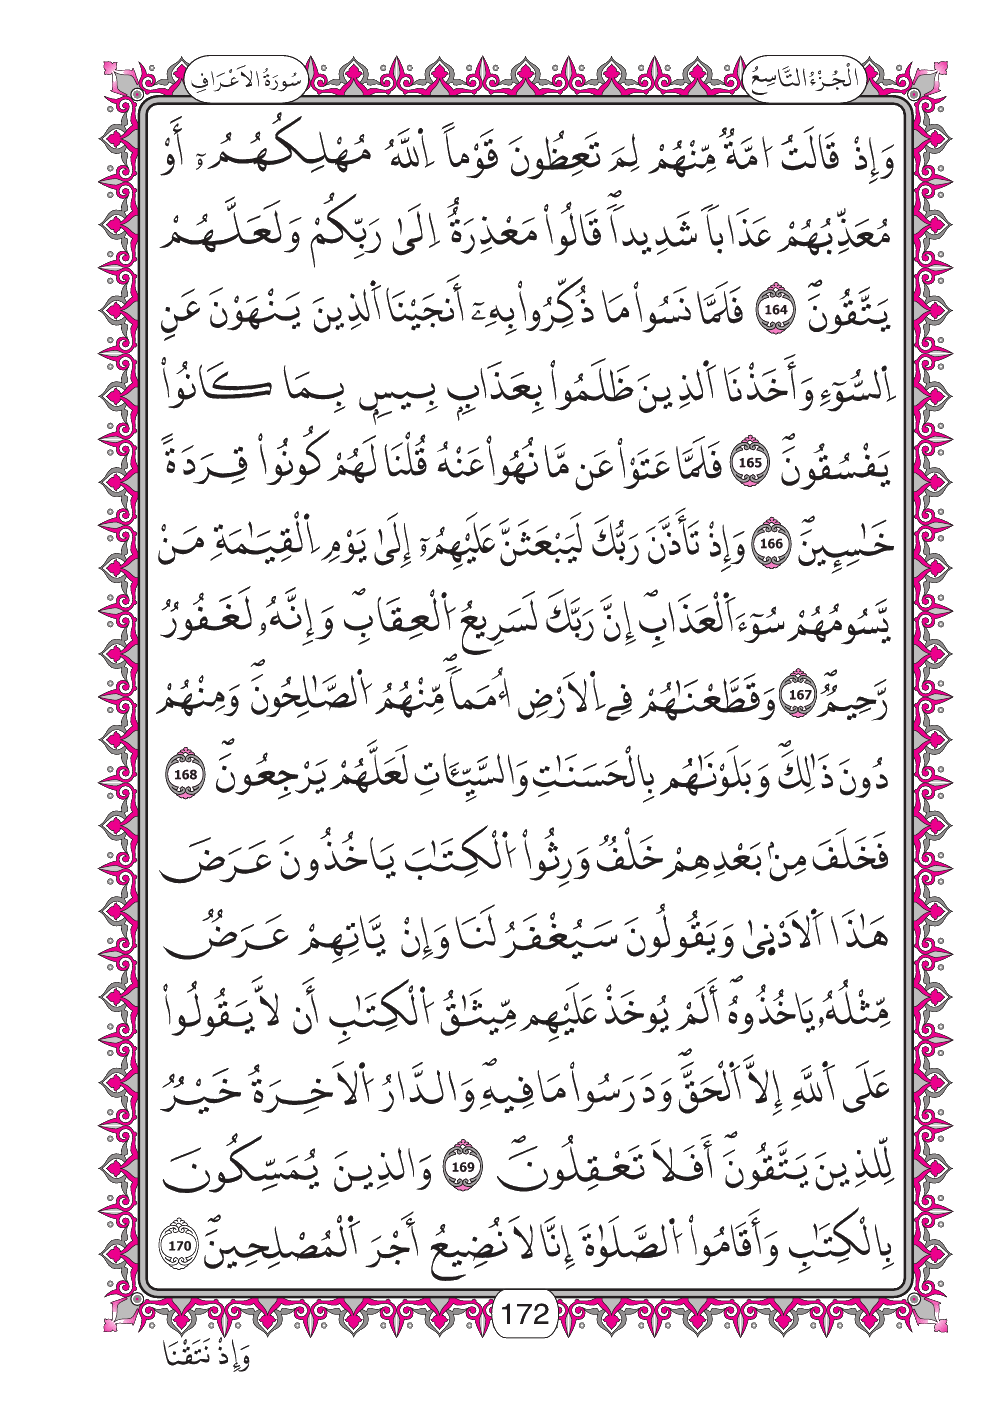 سُورَةُ الَاعْرَافِ
اَلْجُزْءُ التَّاسِعُ
وَإِذْ قَالَتُ ا۟مَّةٌ مِّنْهُمْ لِمَ تَعِظُونَ قَوْماً اِ۬للَّهُ مُهْلِكُهُمُۥٓ أَوْ
مُعَذِّبُهُمْ عَذَاباٗ شَدِيداٗۖ قَالُواْ مَعْذِرَةٌ اِلَىٰ رَبِّكُمْ وَلَعَلَّهُمْ
يَتَّقُونَۖ 164 فَلَمَّا نَسُواْ مَا ذُكِّرُواْ بِهِۦٓ أَنجَيْنَا اَ۬لذِينَ يَنْهَوْنَ عَنِ
اِ۬لسُّوٓءِ وَأَخَذْنَا اَ۬لذِينَ ظَلَمُواْ بِعَذَابِۭ بِيسِۭ بِمَا كَانُواْ
يَفْسُقُونَۖ 165 فَلَمَّا عَتَوْاْ عَن مَّا نُهُواْ عَنْهُ قُلْنَا لَهُمْ كُونُواْ قِرَدَةً
خَٰسِـِٕينَۖ 166 وَإِذْ تَأَذَّنَ رَبُّكَ لَيَبْعَثَنَّ عَلَيْهِمُۥٓ إِلَىٰ يَوْمِ اِ۬لْقِيَٰمَةِ مَنْ
يَّسُومُهُمْ سُوٓءَ اَ۬لْعَذَابِۖ إِنَّ رَبَّكَ لَسَرِيعُ اُ۬لْعِقَابِۖ وَإِنَّهُۥ لَغَفُورٌ
رَّحِيمٌۖ 167 وَقَطَّعْنَٰهُمْ فِے اِ۬لَارْضِ أُمَماٗۖ مِّنْهُمُ اُ۬لصَّٰلِحُونَۖ وَمِنْهُمْ
دُونَ ذَٰلِكَۖ وَبَلَوْنَٰهُم بِالْحَسَنَٰتِ وَالسَّيِّـَٔاتِ لَعَلَّهُمْ يَرْجِعُونَۖ 168
فَخَلَفَ مِنۢ بَعْدِهِمْ خَلْفٌ وَرِثُواْ اُ۬لْكِتَٰبَ يَاخُذُونَ عَرَضَ
هَٰذَا اَ۬لَادْنۭىٰ وَيَقُولُونَ سَيُغْفَرُ لَنَا وَإِنْ يَّاتِهِمْ عَرَضٌ
مِّثْلُهُۥ يَاخُذُوهُۖ أَلَمْ يُوخَذْ عَلَيْهِم مِّيثَٰقُ اُ۬لْكِتَٰبِ أَن لَّا يَقُولُواْ
عَلَى اَ۬للَّهِ إِلَّا اَ۬لْحَقَّۖ وَدَرَسُواْ مَا فِيهِۖ وَالدَّارُ اُ۬لَاخِرَةُ خَيْرٌ
لِّلذِينَ يَتَّقُونَۖ أَفَلَا تَعْقِلُونَۖ 169 وَالذِينَ يُمَسِّكُونَ
بِالْكِتَٰبِ وَأَقَامُواْ اُ۬لصَّلَوٰةَ إِنَّا لَا نُضِيعُ أَجْرَ اَ۬لْمُصْلِحِينَۖ 170
172
وَإِذْ نَتَقْنَا